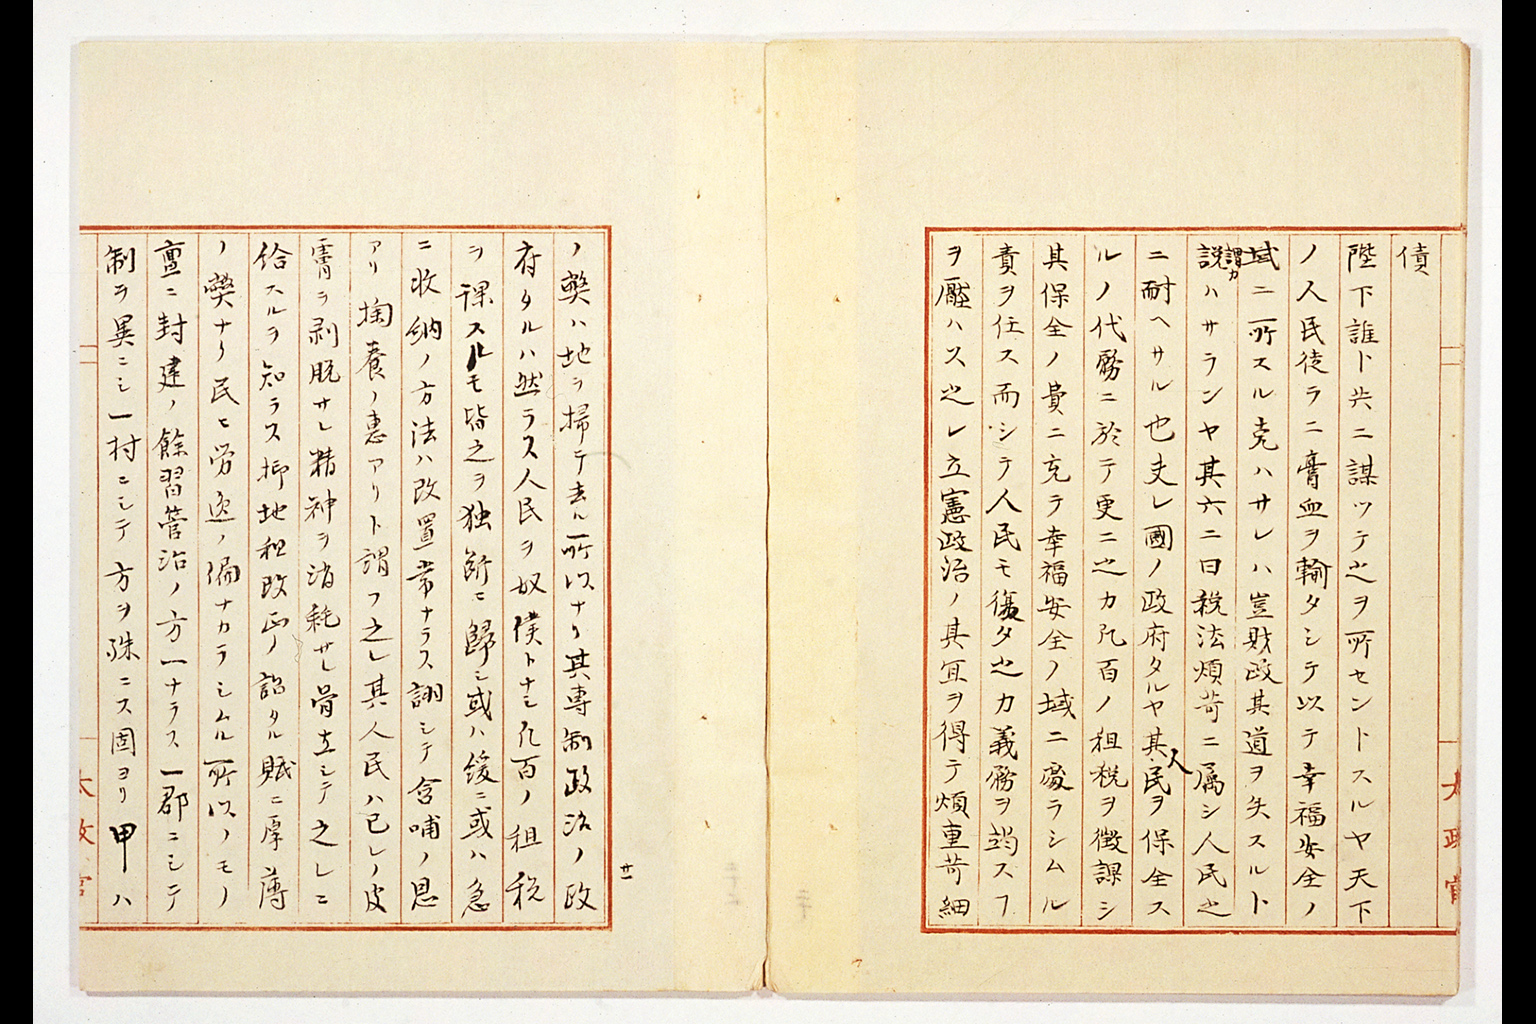 債
陛下誰ト共ニ謀ツテ之ヲ所セントスルヤ天下
ノ人民徒ラニ膏血ヲ輸タシテ以テ幸福安全ノ
域ニ所スル克ハサレハ豈財政其道ヲ失スルト
謂カ
説ハサランヤ其六ニ曰税法煩苛ニ属シ人民之
ニ耐ヘサル也夫レ國ノ政府タルヤ其人民ヲ保全ス
ルノ代務ニ於テ更ニ之カ凡百ノ租税ヲ徴課シ
其保全ノ費ニ充テ幸福安全ノ域ニ處ラシムル
責ヲ任ス而シテ人民モ復タ之カ義務ヲ竭スフ
ヲ厭ハス之レ立憲政治ノ其宜ヲ得テ煩重苛細
ノ弊ハ地ヲ掃テ去ル所以ナリ其専制政治ノ政
府タルハ然ラス人民ヲ奴僕トナシ凡百ノ租税
ヲ課スルモ皆之ヲ独断ニ歸シ或ハ緩ニ或ハ急
ニ收納ノ方法ハ改置常ナラス詡シテ含哺ノ恩
アリ掬養ノ惠アリト謂フ之レ其人民ハ已レノ皮
膏ヲ剥脱サレ精神ヲ消耗サレ骨立シテ之レニ
給スルヲ知ラス抑地租改正ノ詔タル賦ニ厚薄
ノ弊ナリ民ニ労逸ノ偏ナカラシムル所以ノモノ
亶ニ封建ノ餘習管治ノ方一ナラス一郡ニシテ
制ヲ異ニシ一村ニシテ方ヲ殊ニス固ヨリ甲ハ
廿一
太政官
太政官